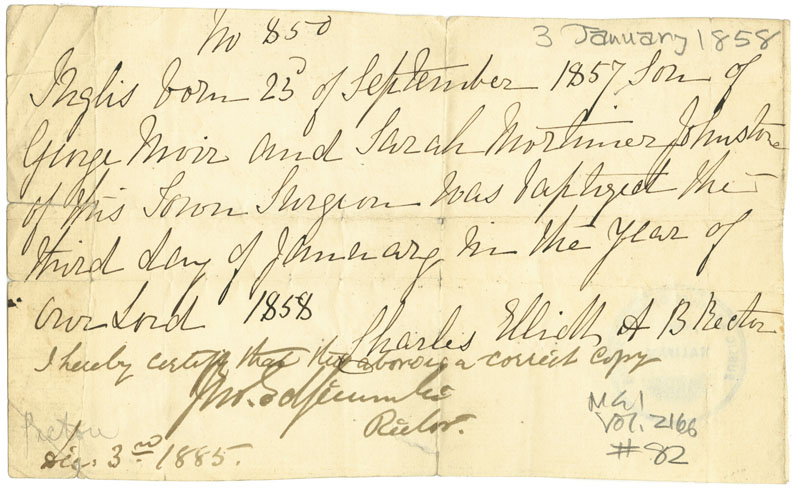 No 850
3 January 1858
Inglis born 23d of September 1857 Son of
George Moir and Sarah Mortimer Johnstone
of this Town Surgeon was baptized the
third day of January in the Year of
Our Lord 1858
Charles Elliott A B Rector
I hereby certify that the above is a correct copy
Jno.
Rector.
Pictou
Dec: 3rd 1885.
MG 1
Vol. 2166
#82